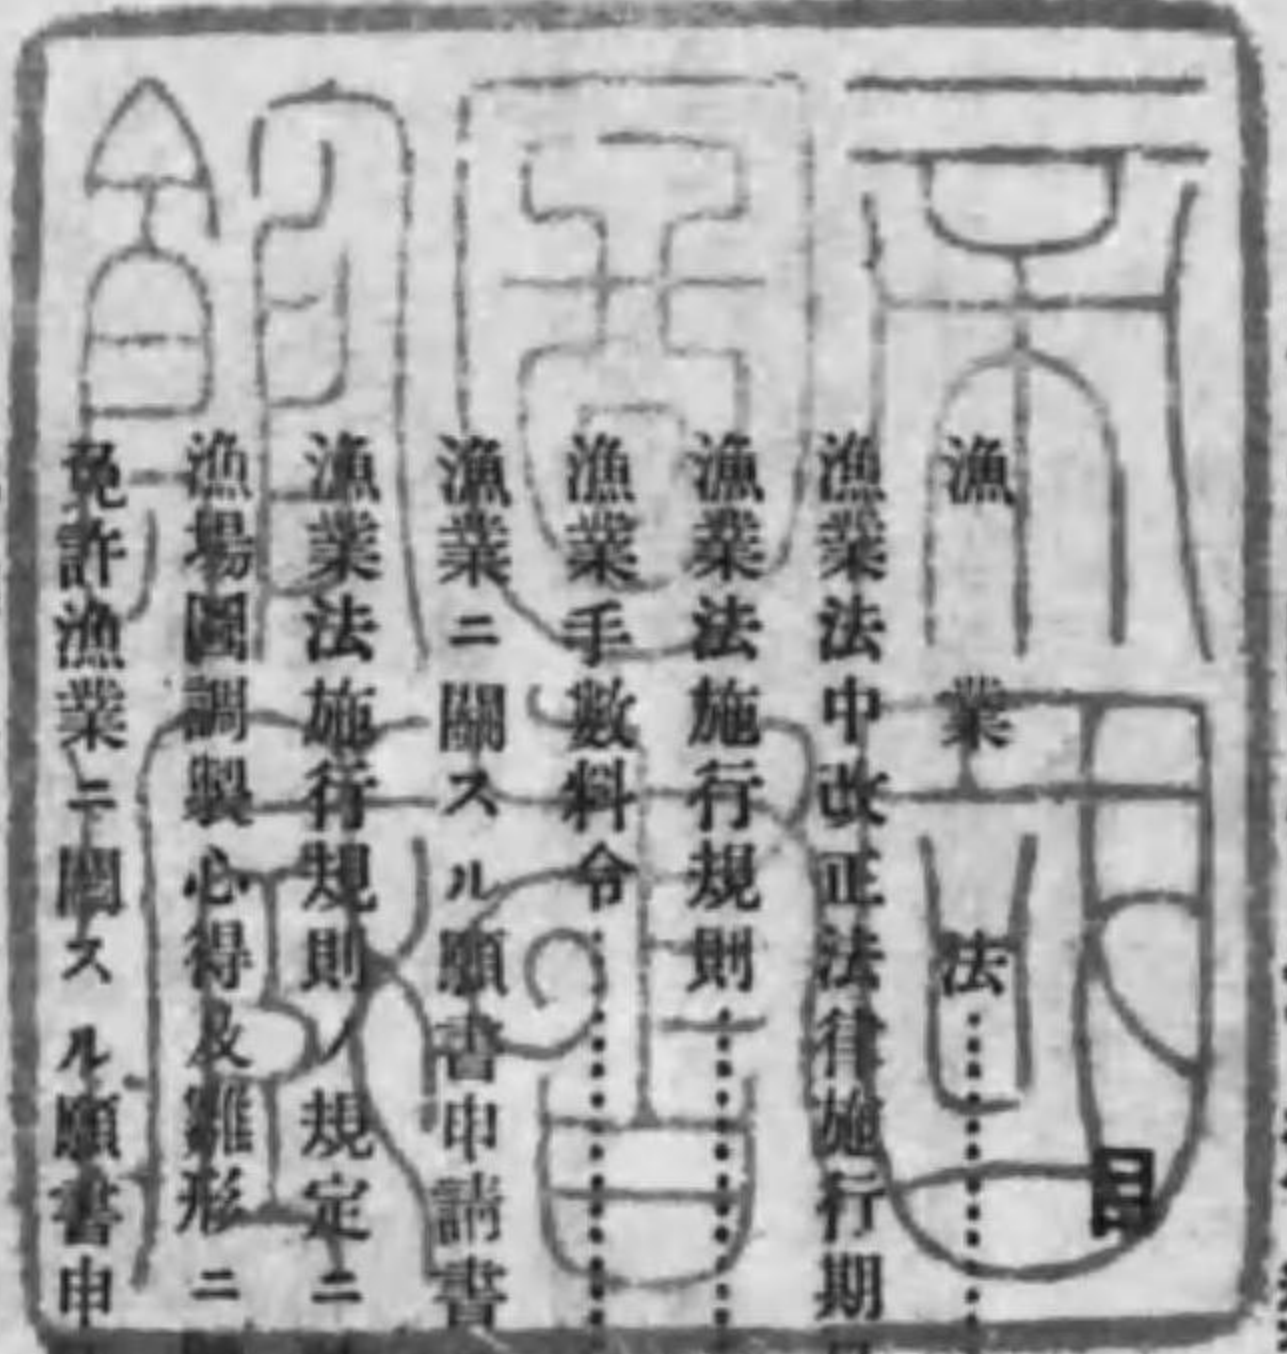 目
漁業法
漁業法中改正法律施行期
漁業法施行規則
漁業手數料令
漁業ニ關スル願書申請書
漁業法施行規則ノ規定ニ
漁場圖調製心得及雛形ニ
免許漁業ニ關スル願書申